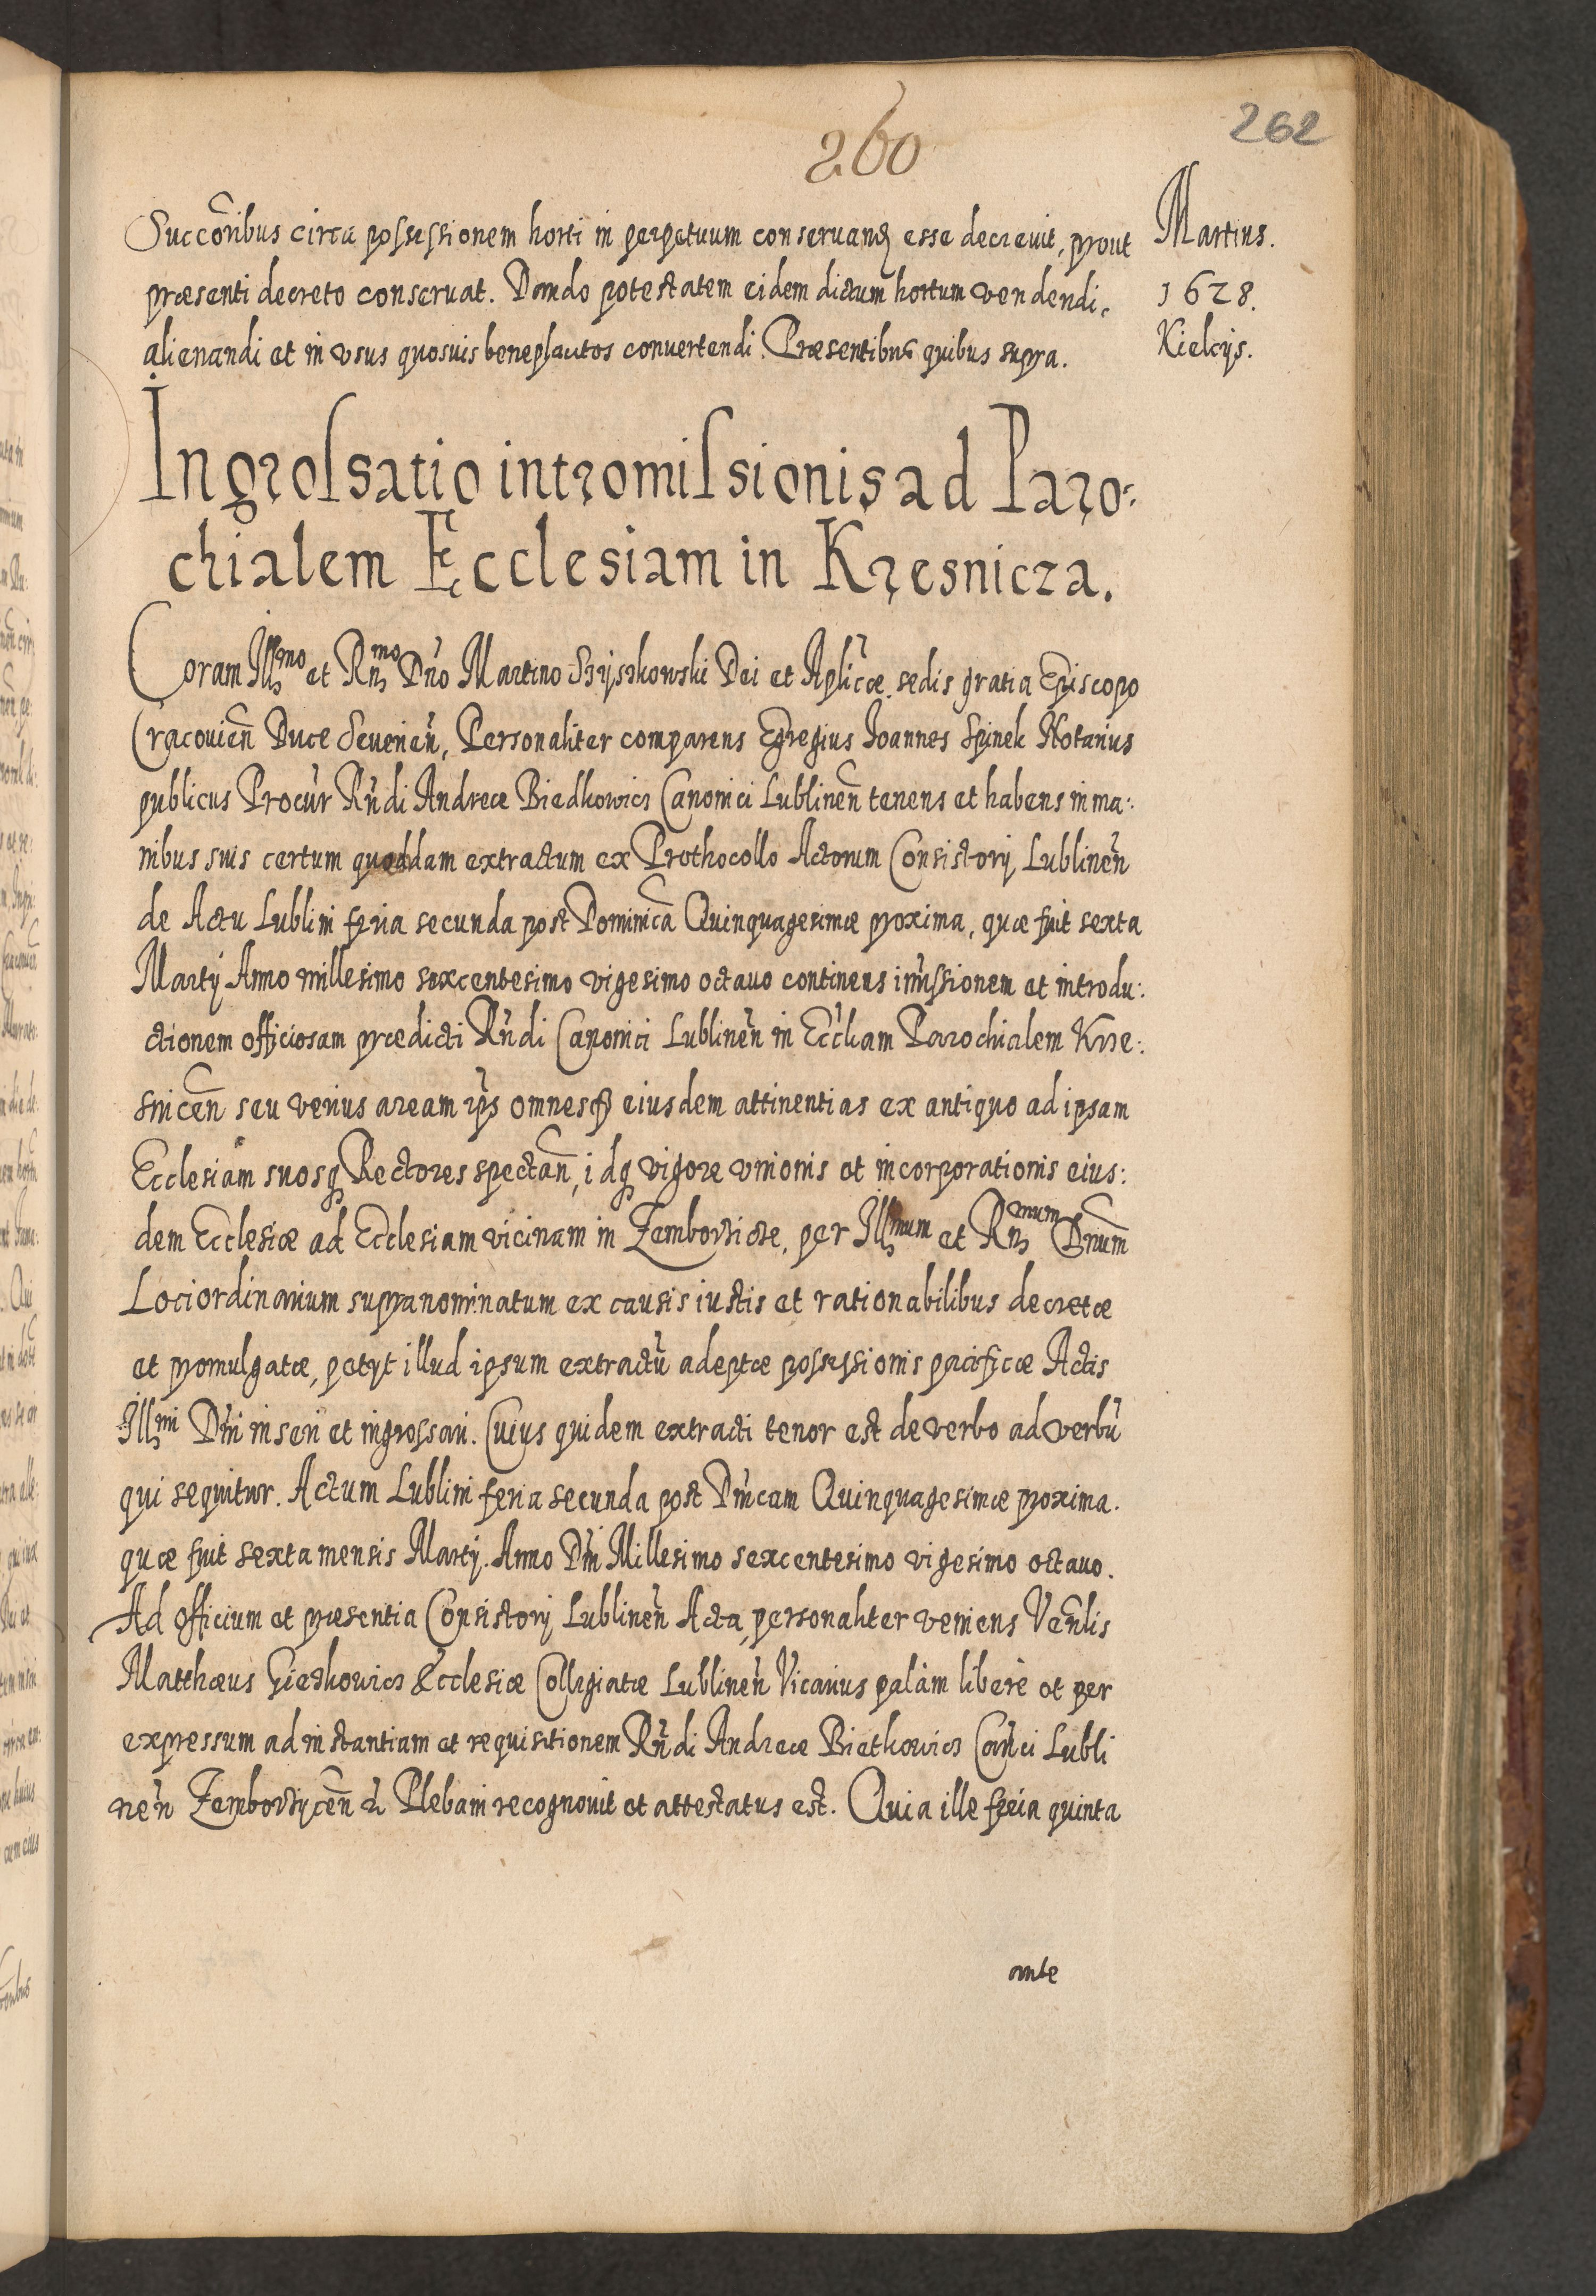 260
262
Succõribus circa possessionem horti in perpetuum conseruanđ esse decreuit, prout
præsenti decreto conseruat. Dando potestatem eidem dictum hortum vendendi,
alienandi et in vsus quosuis beneplacitos conuertendi. Præsentibus quibus supra.
Martius.
1628.
Kielcijs.
Ingrossatio intromissionis ad Paro:
chialem Ecclesiam in Kresnicza.
Coram Illmo et Rndmo Dño Martino Szyszkowski Dei et Aplicæ sedis gratia Episcopo
Cracouień Duce Seuerień, Personaliter comparens Egregius Ioannes Spinek Notarius
publicus Procur Rñdi Andreæ Biedkowicz Canonici Lublineñ tenens et habens in ma:
nibus suis certum quoddam extractum ex Prothocollo Actorum Consistorij Lublineñ
de Actu Lublini feria secunda post Dominicã Quinquagesimæ proxima, quæ fuit sexta
Martij Anno millesimo sexcentesimo vigesimo octauo continens im̃issionem et introdu:
ctionem officiosam prædicti Rñdi Canonici Lublineñ in Eccliam Parochialem Krze:
sniceñ seu verius aream ips omnesq; eiusdem attinentias ex antiquo ad ipsam
Ecclesiam suosq; Rectores spectañ, idq; vigore vnionis et incorporationis eius:
dem Ecclesiæ ad Ecclesiam vicinam in Zemborzicze, per Illmum et Rndmum Dñum
Loci ordinarium supranominatum ex causis iustis et rationabilibus decretæ
et promulgatæ, petijt illud ipsum extractũ adeptæ possessionis pacificæ Actis
Illmi Dñi inseri et ingrossari. Cuius quidem extracti tenor est de verbo ad verbũ
qui sequitur. Actum Lublini feria secunda post Dñicam Quinquagesimæ proxima.
quæ fuit sexta mensis Martij. Anno Dñi Millesimo sexcentesimo vigesimo octauo.
Ad Officium et præsentia Consistorij Lublineñ Acta, personaliter veniens Veñlis
Matthæus Ecclesiæ Collegiatæ Lublineñ Vicarius palàm liberè et per
expressum ad instantiam et requisitionem Rñdi Andreæ Biethowicz Cañci Lubli
neñ Zemborzyceñ Plebani recognouit et attestatus est. Quia ille feria quinta
ante